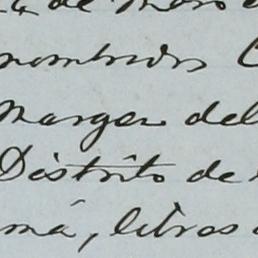 de
nombrados
Margen del
Distrito de
má, libros